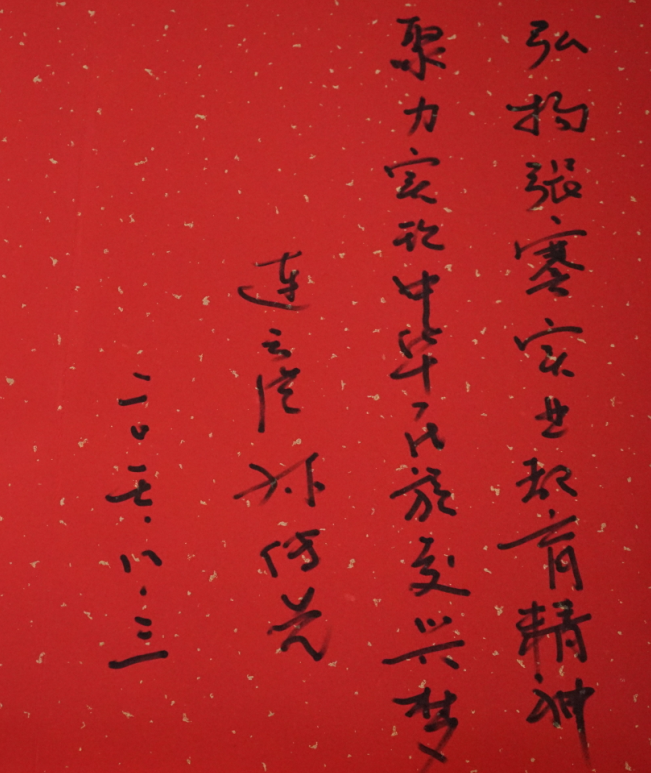 弘扬張謇实业教育精神
聚力实现中华民族复兴梦
连云港 孙 光
二〇一七.八.三